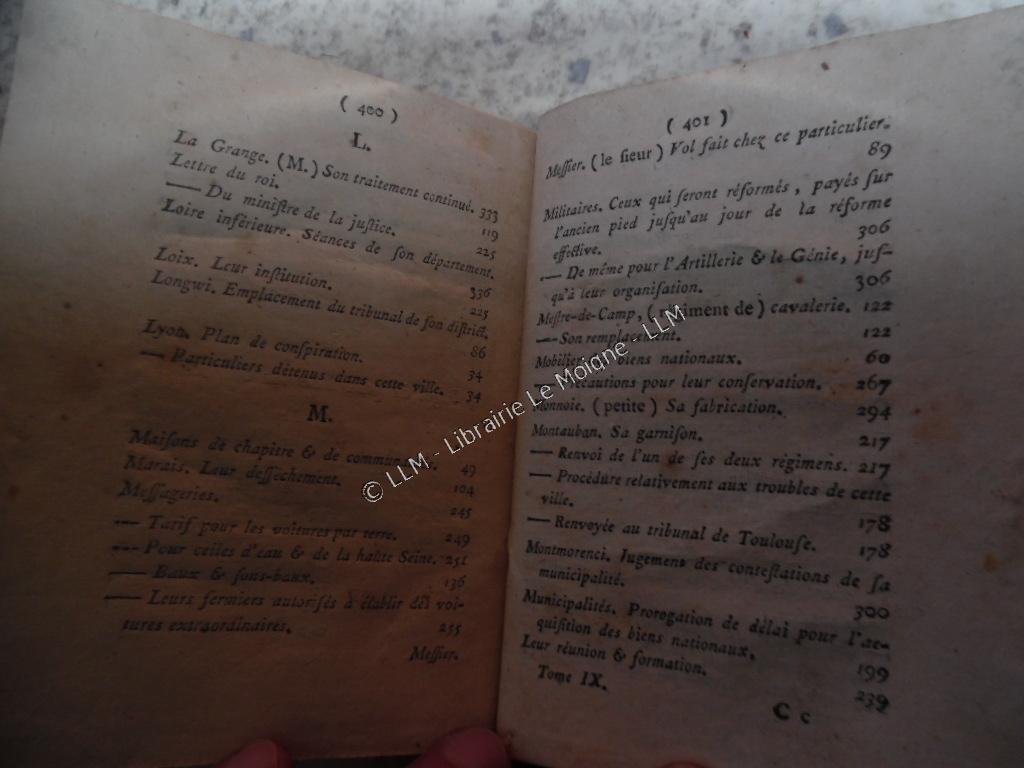 ( 400 )
L.
La Grange. (M.) Son traitement continué. 333
Lettre du roi. 119
— Du ministre de la justice. 225
Loire inférieure. Séances de son département. 336
Loix. Leur institution. 225
Longwi. Emplacement du tribunal de son district. 86
Lyon. Plan de conspiration. 34
— Particuliers détenus dans cette ville. 34
M.
Maisons de chapitre & de 49
Marais. Leur dessèchement. 104
Messageries. 245
— Tarif pour les voitures par terre. 249
— Pour celles d'eau & de la haute Seine. 251
— Baux & sous-baux. 136
— Leurs fermiers autorisés à établir des voi-
tures extraordinaires. 255
Messier.
( 401 )
Messier. (le sieur) Vol fait chez ce particulier. 89
Militaires. Ceux qui seront réformés, payés sur
l'ancien pied jusqu'au jour de la réforme
effective. 306
— De même pour l'Artillerie & le Génie, jus-
qu'à leur organisation. 306
Mestre-de-Camp, ( de ) cavalerie. 122
— Son remplacement. 122
Mobilier biens nationaux. 60
— Précautions pour leur conservation. 267
Monnoie. (petite) Sa fabrication. 294
Montauban. Sa garnison. 217
— Renvoi de l'un de ses deux régimens. 217
— Procédure relativement aux troubles de cette
ville. 178
— Renvoyée au tribunal de Toulouse. 178
Montmorenci. Jugement des contestations de sa
municipalité. 300
Municipalités. Prorogation de délai pour l'ac-
quisition des biens nationaux. 199
Leur réunion & formation. 239
Tome IX.
C c
© LLM - Librairie Le Moigne - LLM